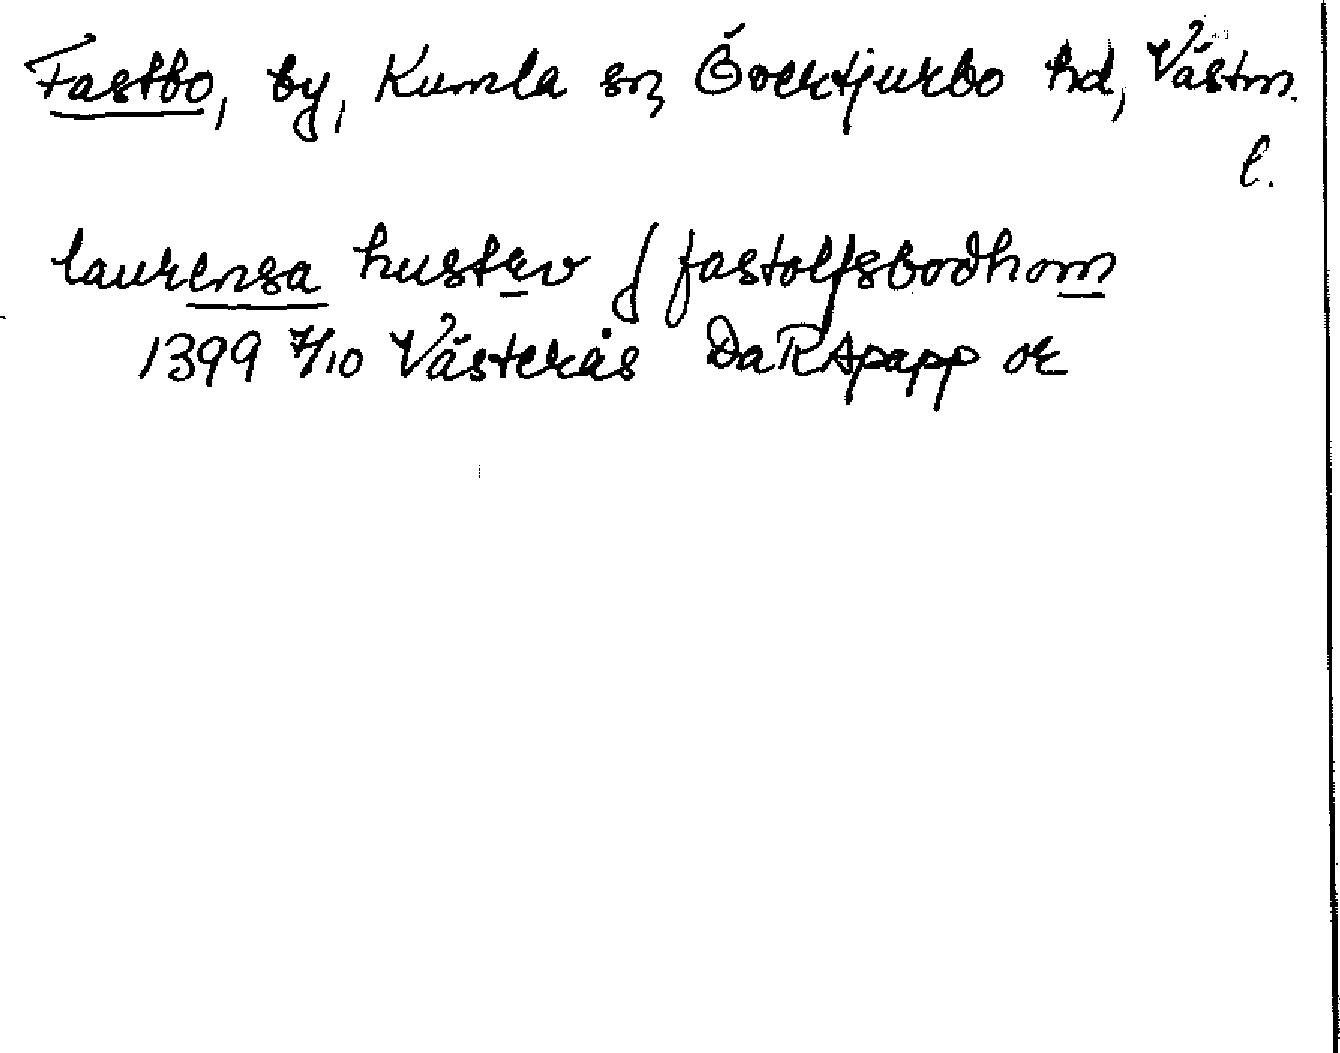 Fastbo, by, Kumla sn, Övertjurbo hd, Västm.
l.
laurensa hustrv j fastolfsbodhom
1399 7/10 Västerås DaRApapp or